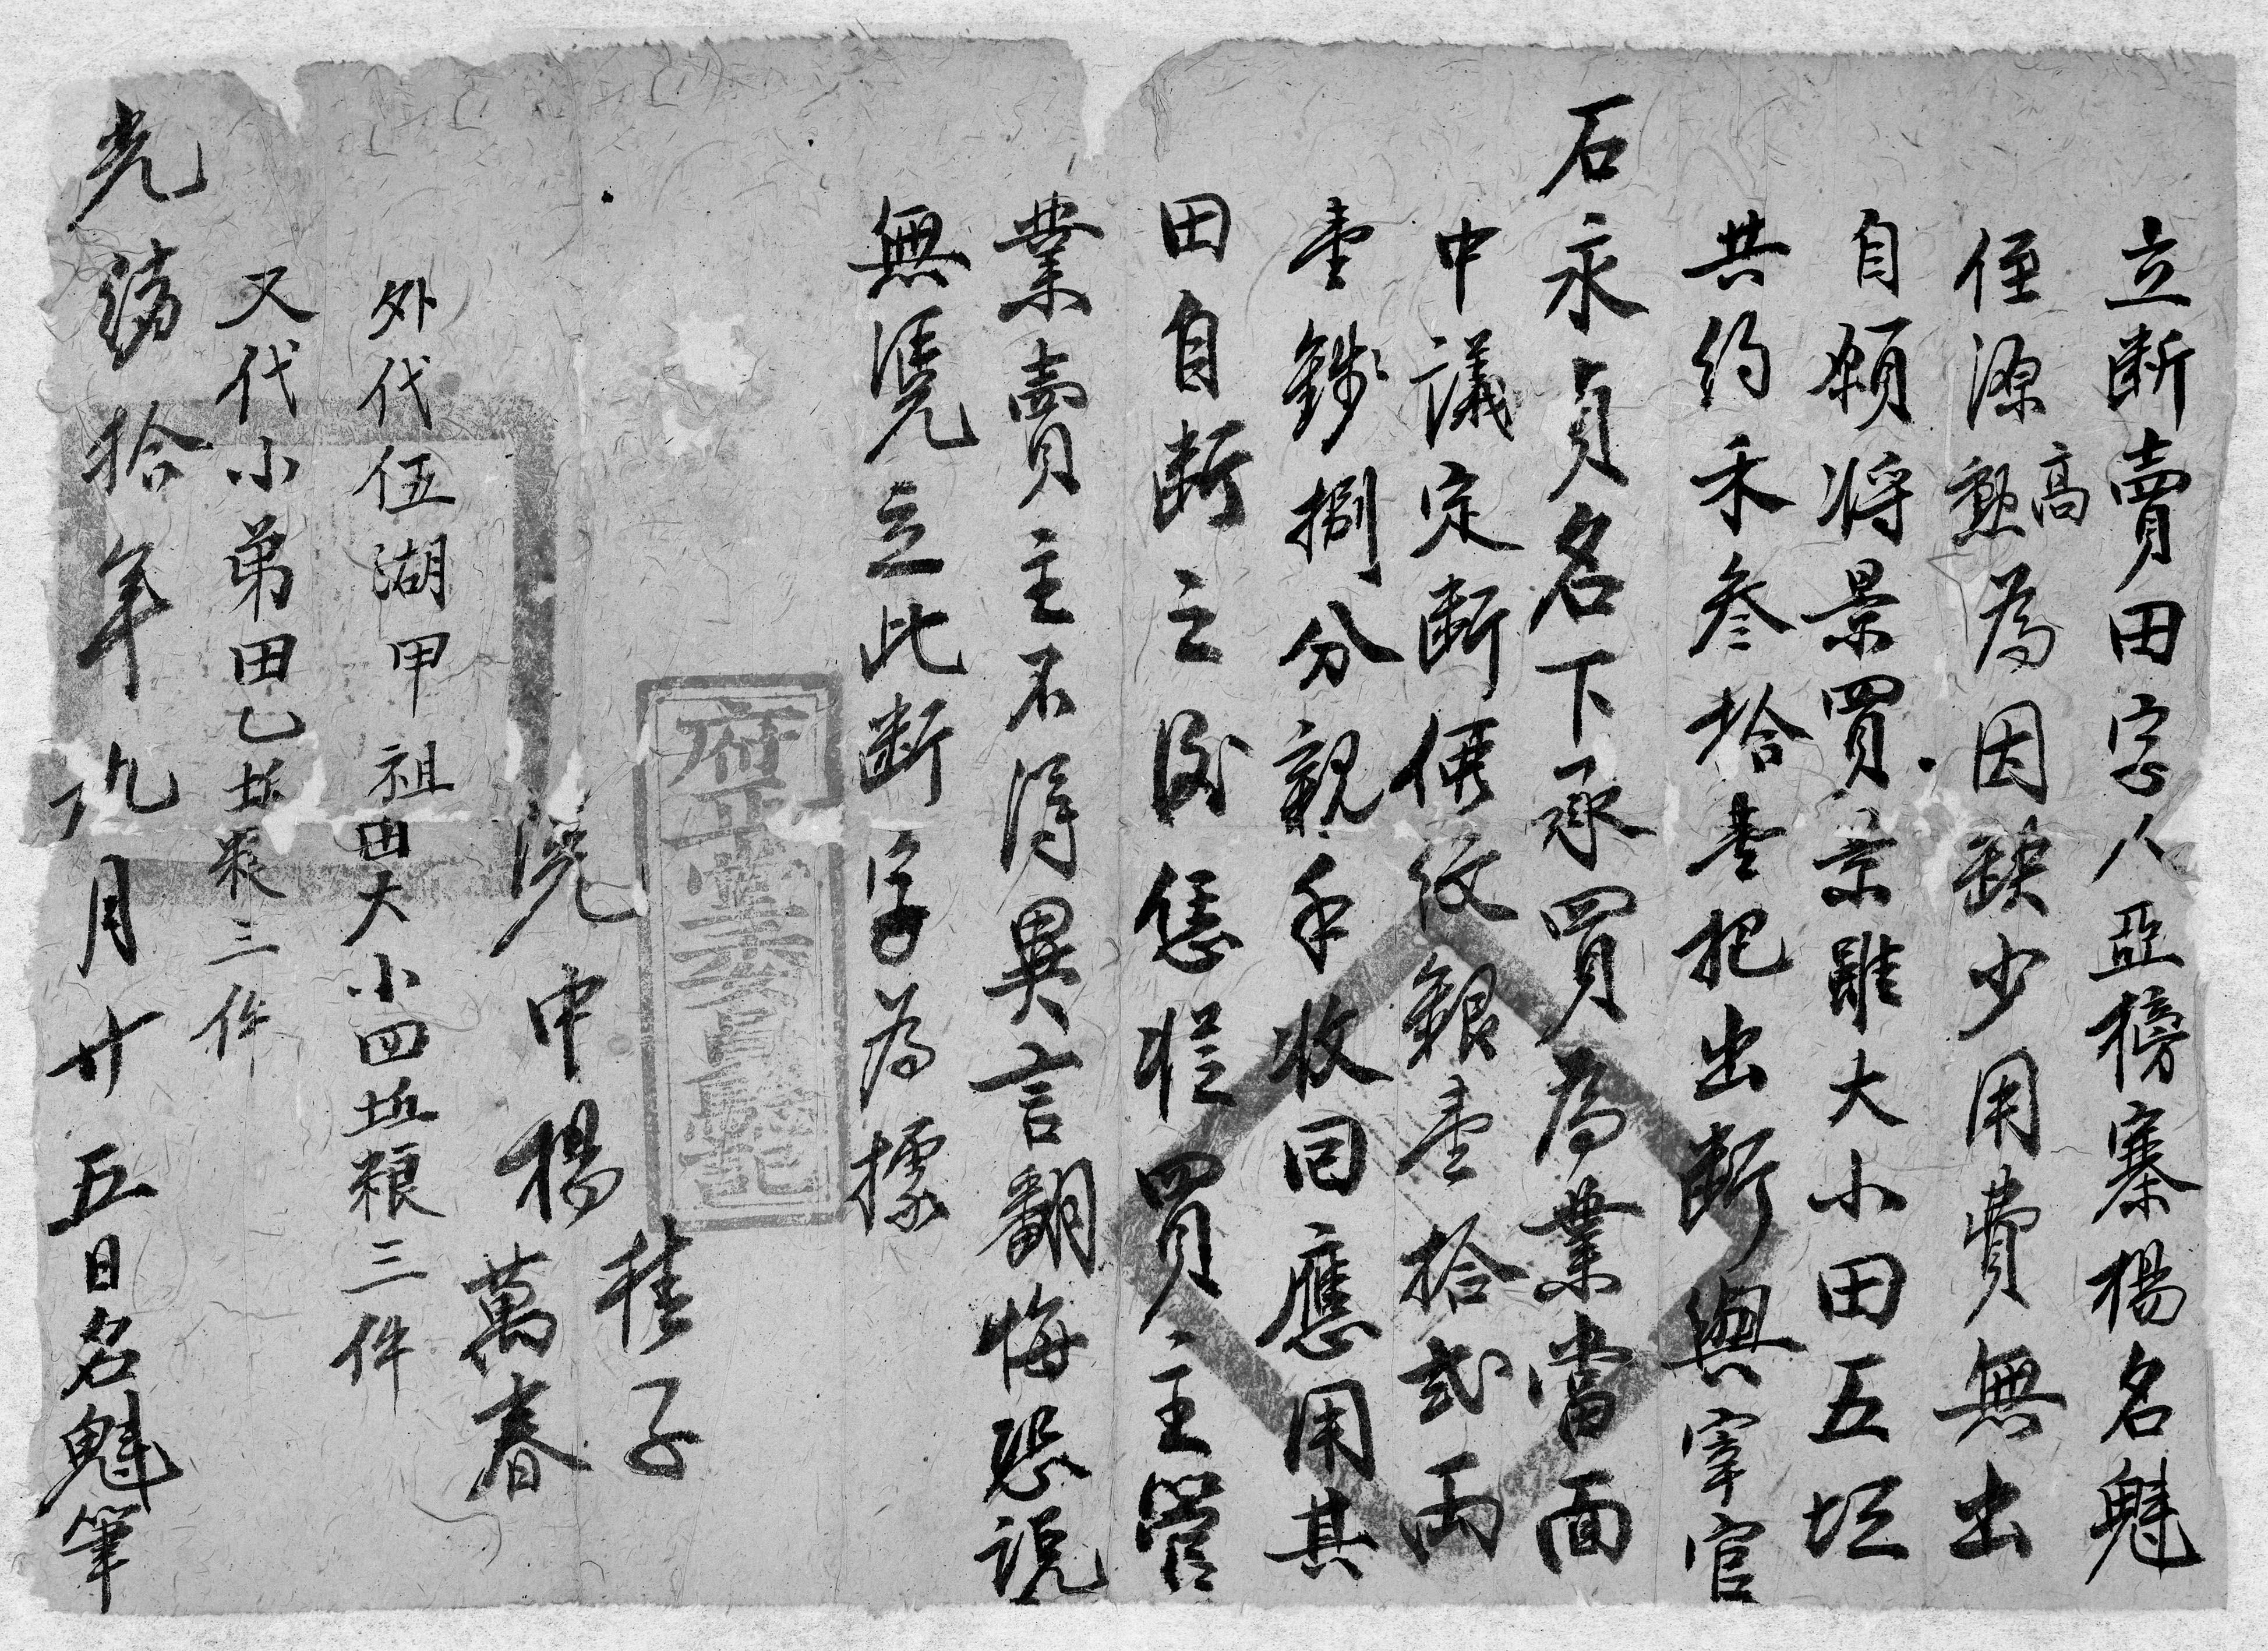 立断賣田字人亞榜寨楊名魁
侄源高
勲為因缺少用費無出
自願将景買景雖大小田五坵
共約禾叄拾壹把出断與宰官
石永貞名下承買為業當面
中議定断價紋銀壹拾弍両
壹錢捌分親手收囬應用其
田自断之後恁從買主管
業賣主不淂異言翻悔恐説
無凴立此断字為據
桂子
凴中楊
萬春
外代伍湖甲祖田大小四坵粮三件
又代小弟田乙坵粮三件
光緒拾年九月廿五日名魁筆